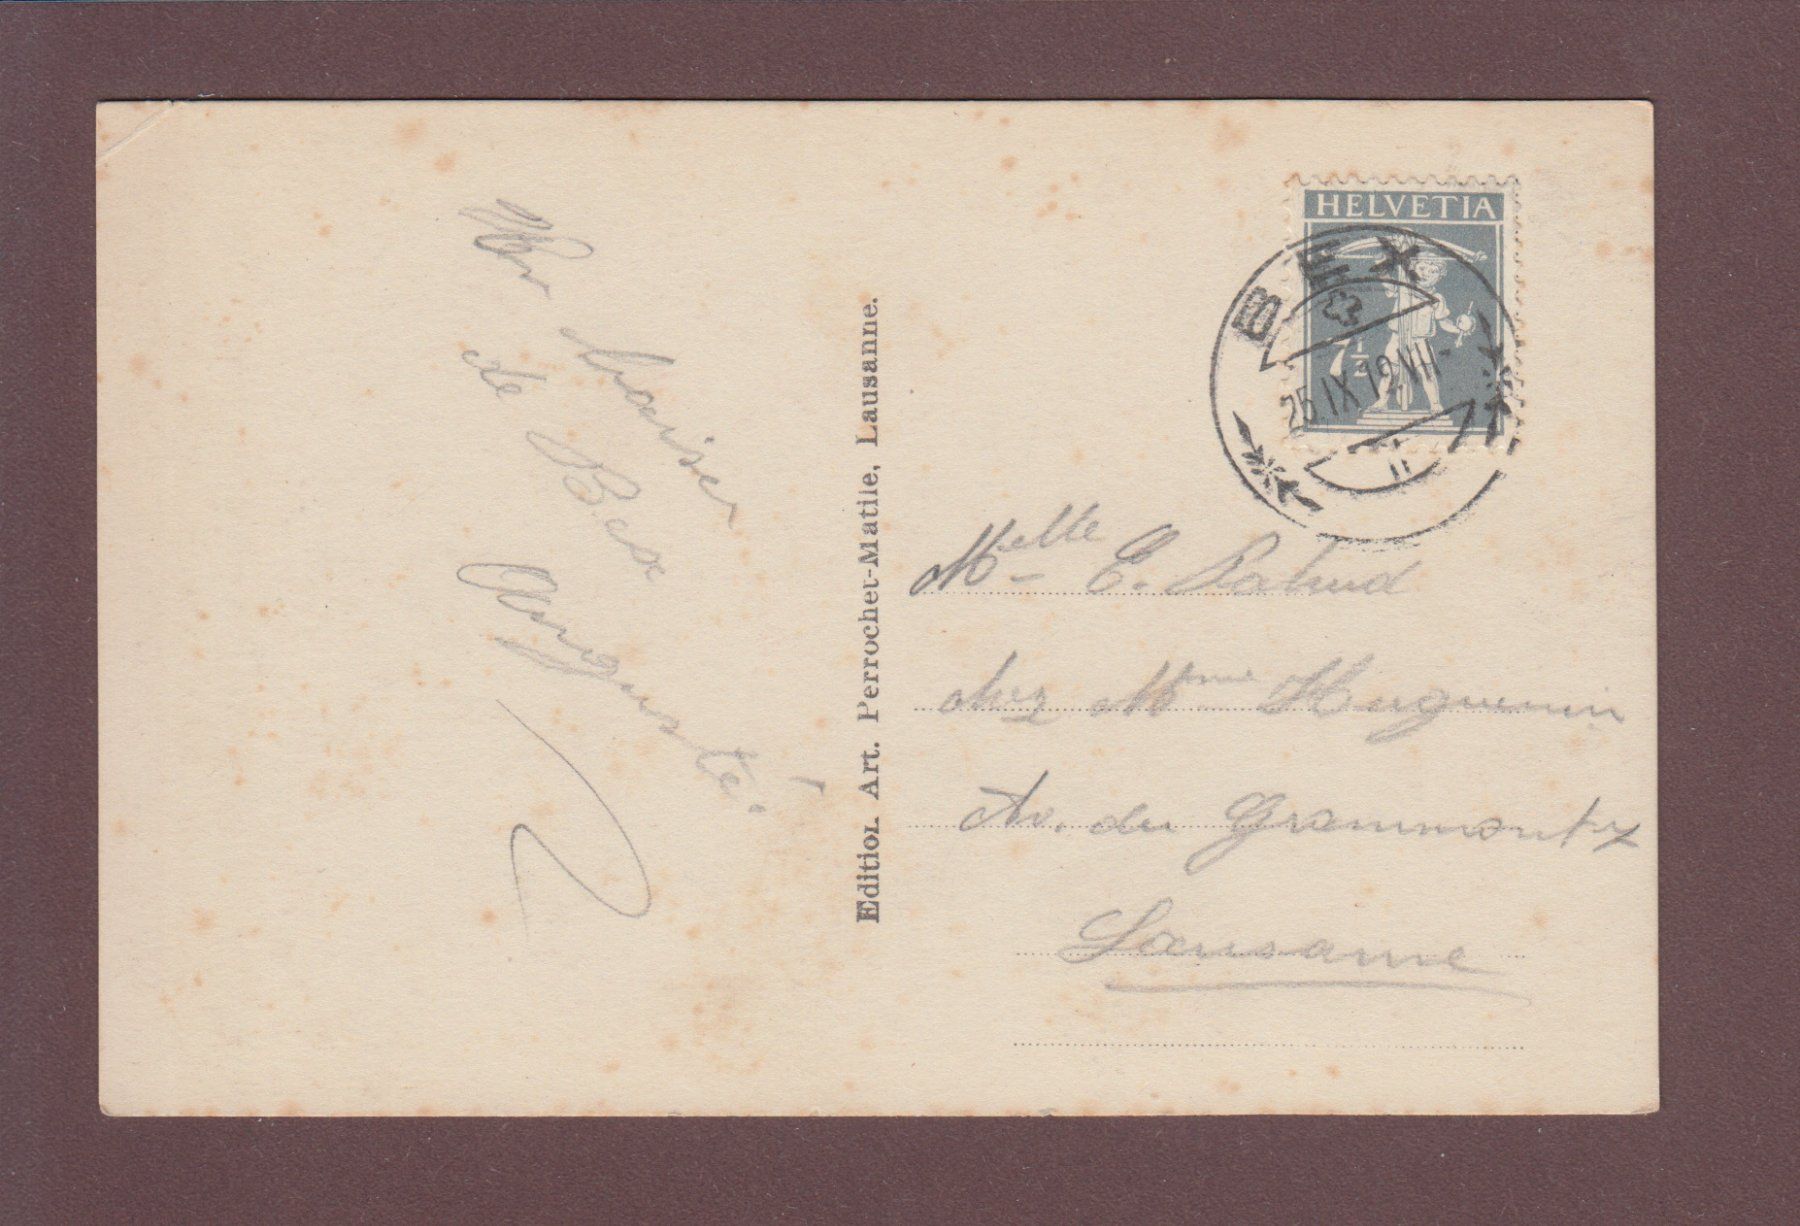 Un baiser
de Bex
Auguste.
Edition Art. Perrochet-Matile, Lausanne.
HELVETIA
7½
BEX
25.IX.19.VII-
Melle E.
chez Mme Huguenin
Av. du Grammont 7
Lausanne